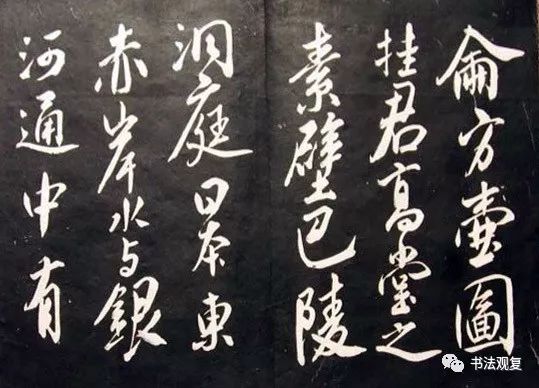 侖方壺圖
挂君高堂之
素壁巴陵
洞庭日本東
赤岸水与銀
河通中有
书法观复